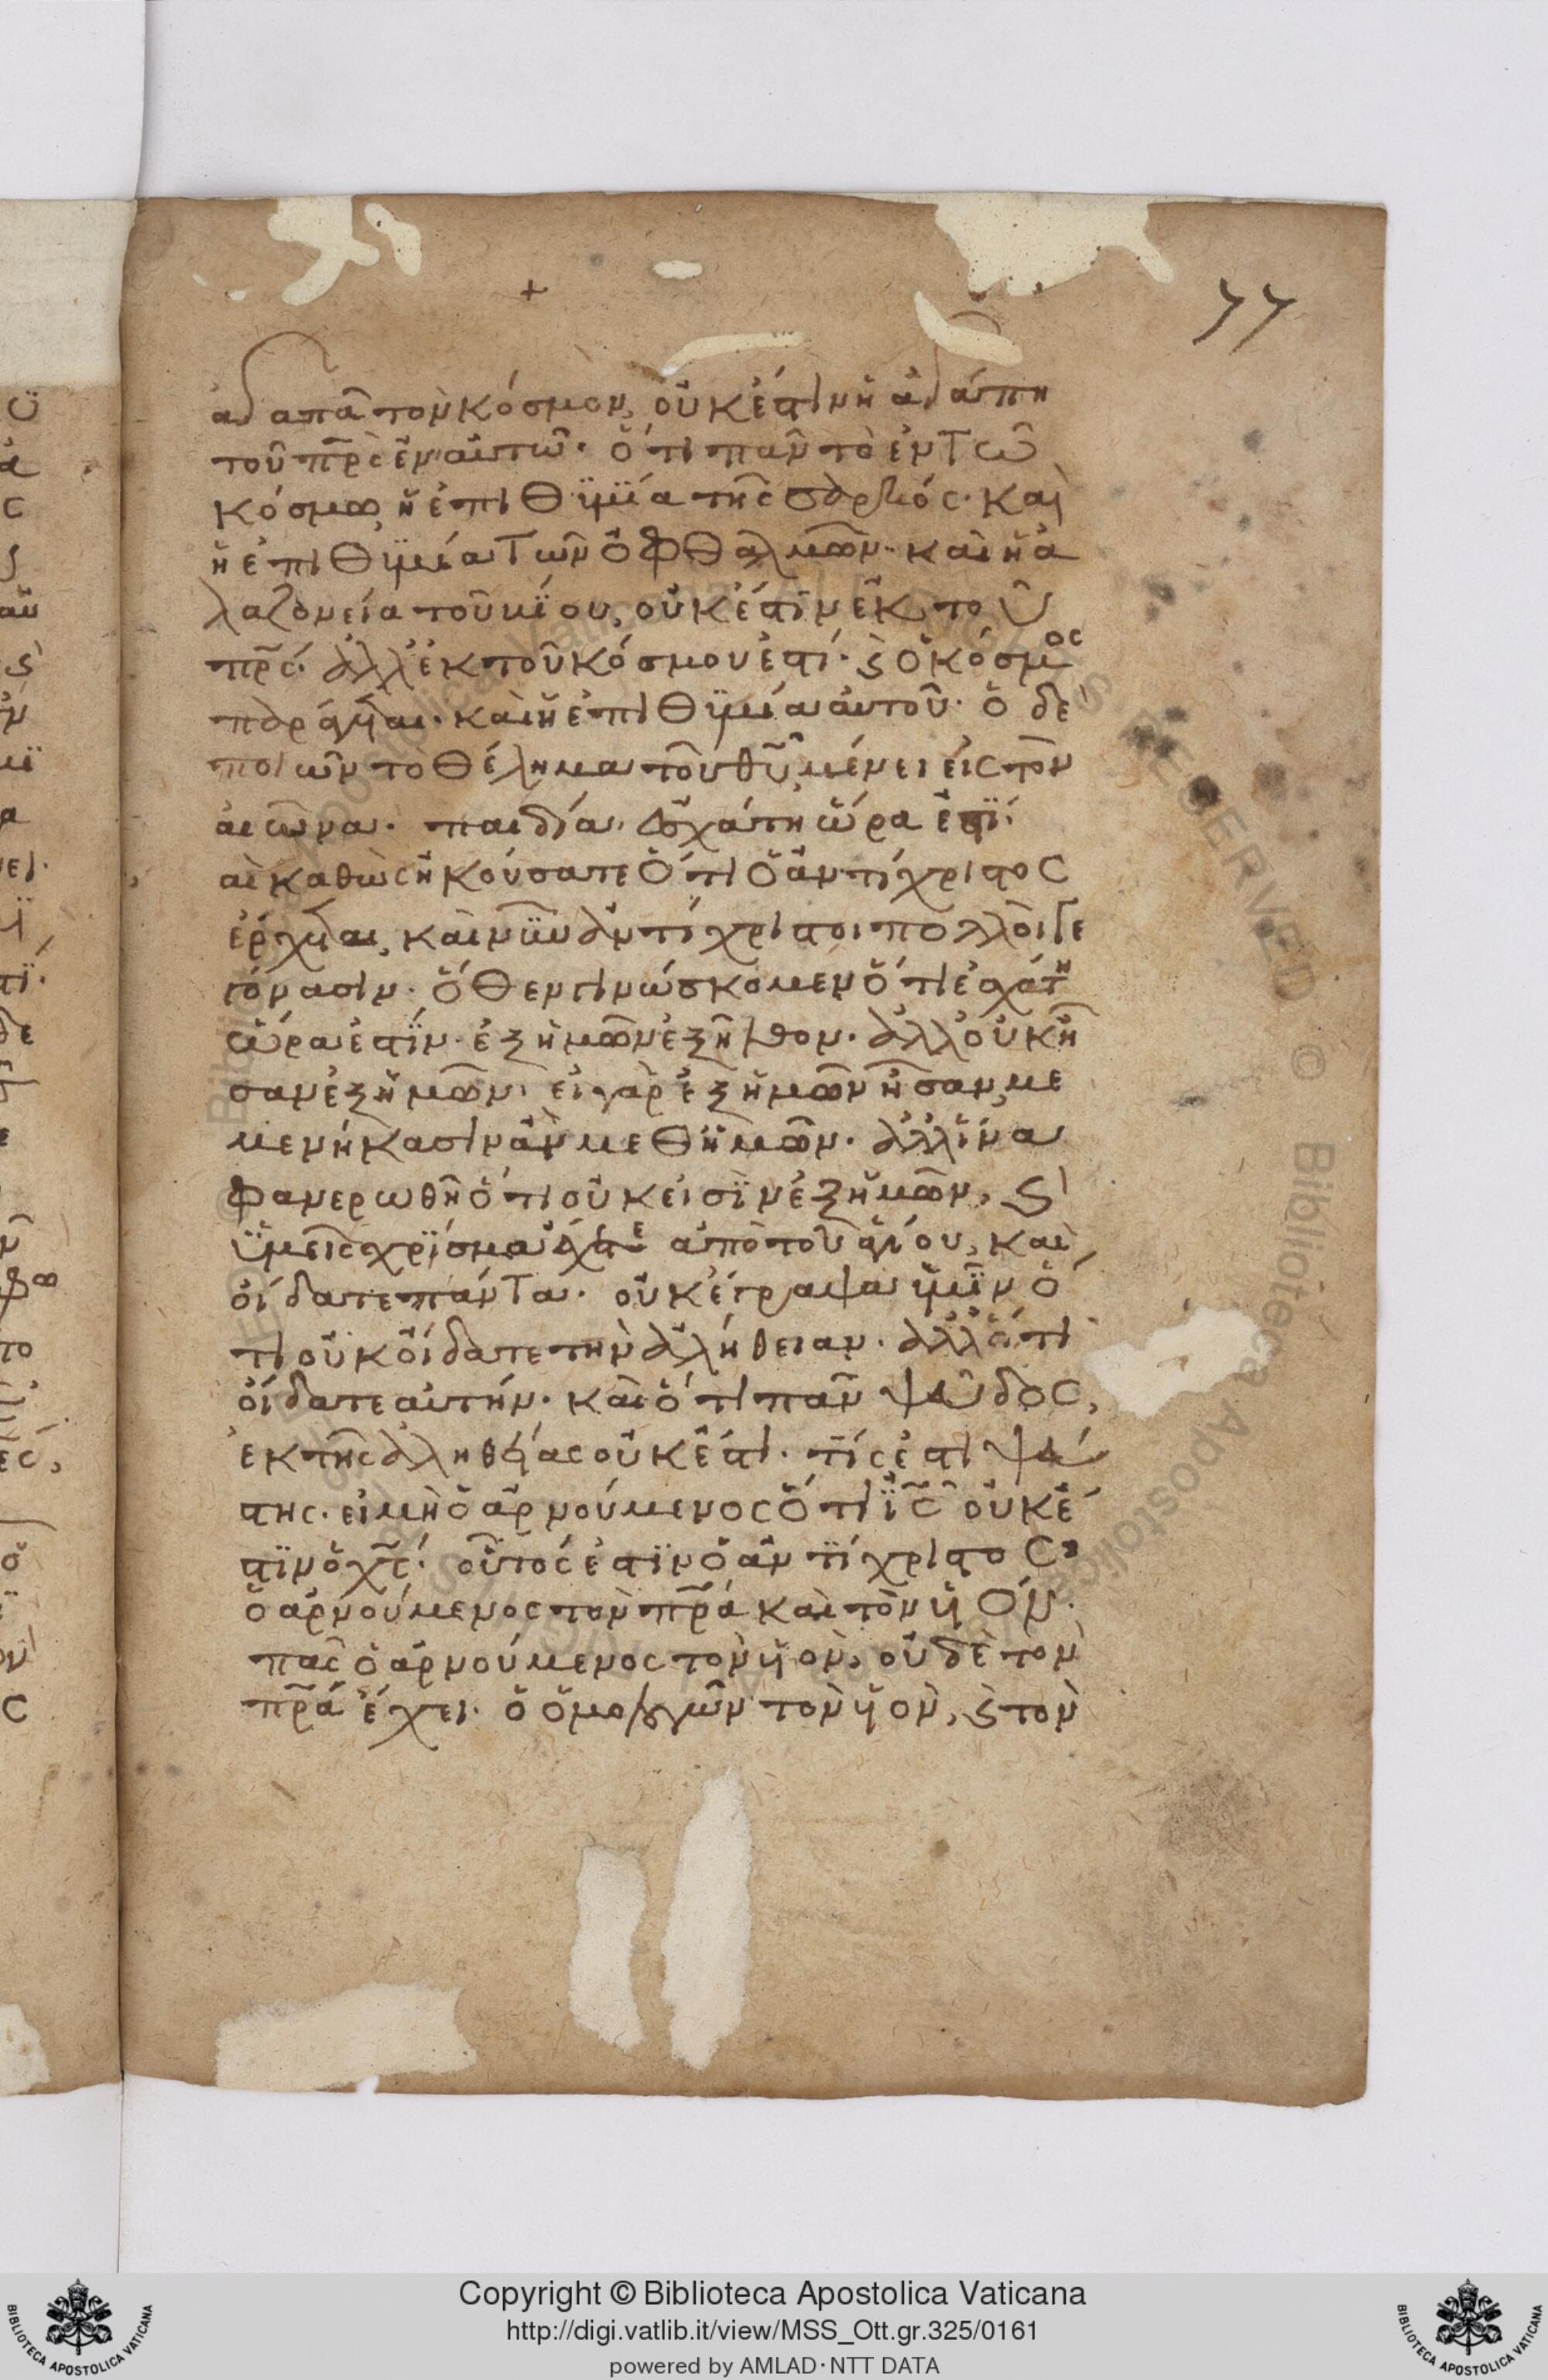 77
+
ἀγαπᾶ τὸν κόσμον, οὐκ ἔστιν ἡ ἀγάπη
τοῦ πρ̅ς ἐν αὐτῶ· ὅτι πᾶν τὸ ἐν τῶ
κόσμω, ἡ ἐπιθϋμϊα τῆς σαρκός· καὶ
ἡ ἐπιθϋμία τῶν ὀφθαλμῶν· καὶ ἡ ἀ
λαζονεία τοῦ κϊου, οὐκ ἔστιν ἐκ τοῦ
πρ̅ς· ἀλλ' ἐκ τοῦ κόσμου ἐστί· ϛ ὁ κόσμος
παράγεται· καὶ ἡ ἐπιθϋμία αὐτοῦ· ὁ δὲ
ποιῶν τὸ θέλημα τοῦ θ̅υ μένει εἰς τὸν
αἰῶνα· παιδία, ἐσχάτη ὥρα ἐστϊ·
αὶ καθὼς ἠκούσατε ὅτι ὁ ἀντίχριστος
ἔρχεται, καὶ νῦν ἀντίχριστοι πολλοὶ γε
γόνασιν· ὅθεν γινώσκομεν ὅτι ἐσχάτη
ὥρα ἐστϊν· ἐξ ἡμῶν ἐξῆλθον· ἀλλ' οὐκ ἦ
σαν ἐξ ἡμῶν· εἰ γὰρ ἐξ ἡμῶν ἦσαν, με
μενήκασιν ἂν μεθ ἡμῶν· ἀλλ' ἵνα
φανερωθῆ ὅτι οὐκ εἰσϊν ἐξ ἡμῶν, ϛ
ὑμεῖς χρϊσμα ἔχετε ἀπὸ τοῦ ἁγίου, καὶ
οἴδατε πάντα· οὐκ ἔγραψα ὑμῖν ὅ
τι οὐκ οἴδατε τὴν ἀλήθειαν· ἀλλ' ὅτι
οἴδατε αὐτήν· καὶ ὅτι πᾶν ψεῦδος,
ἐκ τῆς ἀληθείας οὐκ ἔστι· τίς ἐστι ψεύ
στης· εἰ μὴ ὁ ἀρνούμενος ὅτι ι̅ς οὐκ ἔ
στϊν ὁ χ̅ς· οὗτός ἐστϊν ὁ ἀντϊχριστος
ὁ ἀρνούμενος τὸν πρ̅α καὶ τὸν ὑόν·
πᾶς ὁ ἀρνούμενος τὸν ὑὸν, οὐδὲ τὸν
πρ̅α ἔχει· ὁ ὁμολογῶν τὸν ὑὸν, ϛ τὸν
Copyright © Biblioteca Apostolica Vaticana
http://digi.vatlib.it/view/MSS_Ott.gr.325/0161
powered by AMLAD·NTT DATA